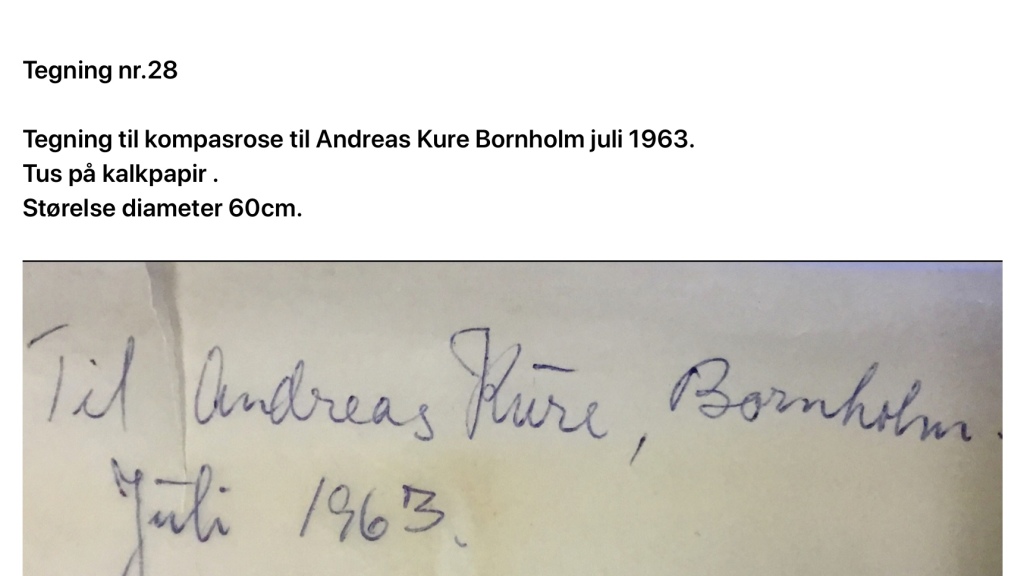 Tegning nr.28
Tegning til kompasrose til Andreas Kure Bornholm juli 1963.
Tus på kalkpapir .
Størelse diameter 60cm.
Til Andreas Kure, Bornholm.
Juli 1963.